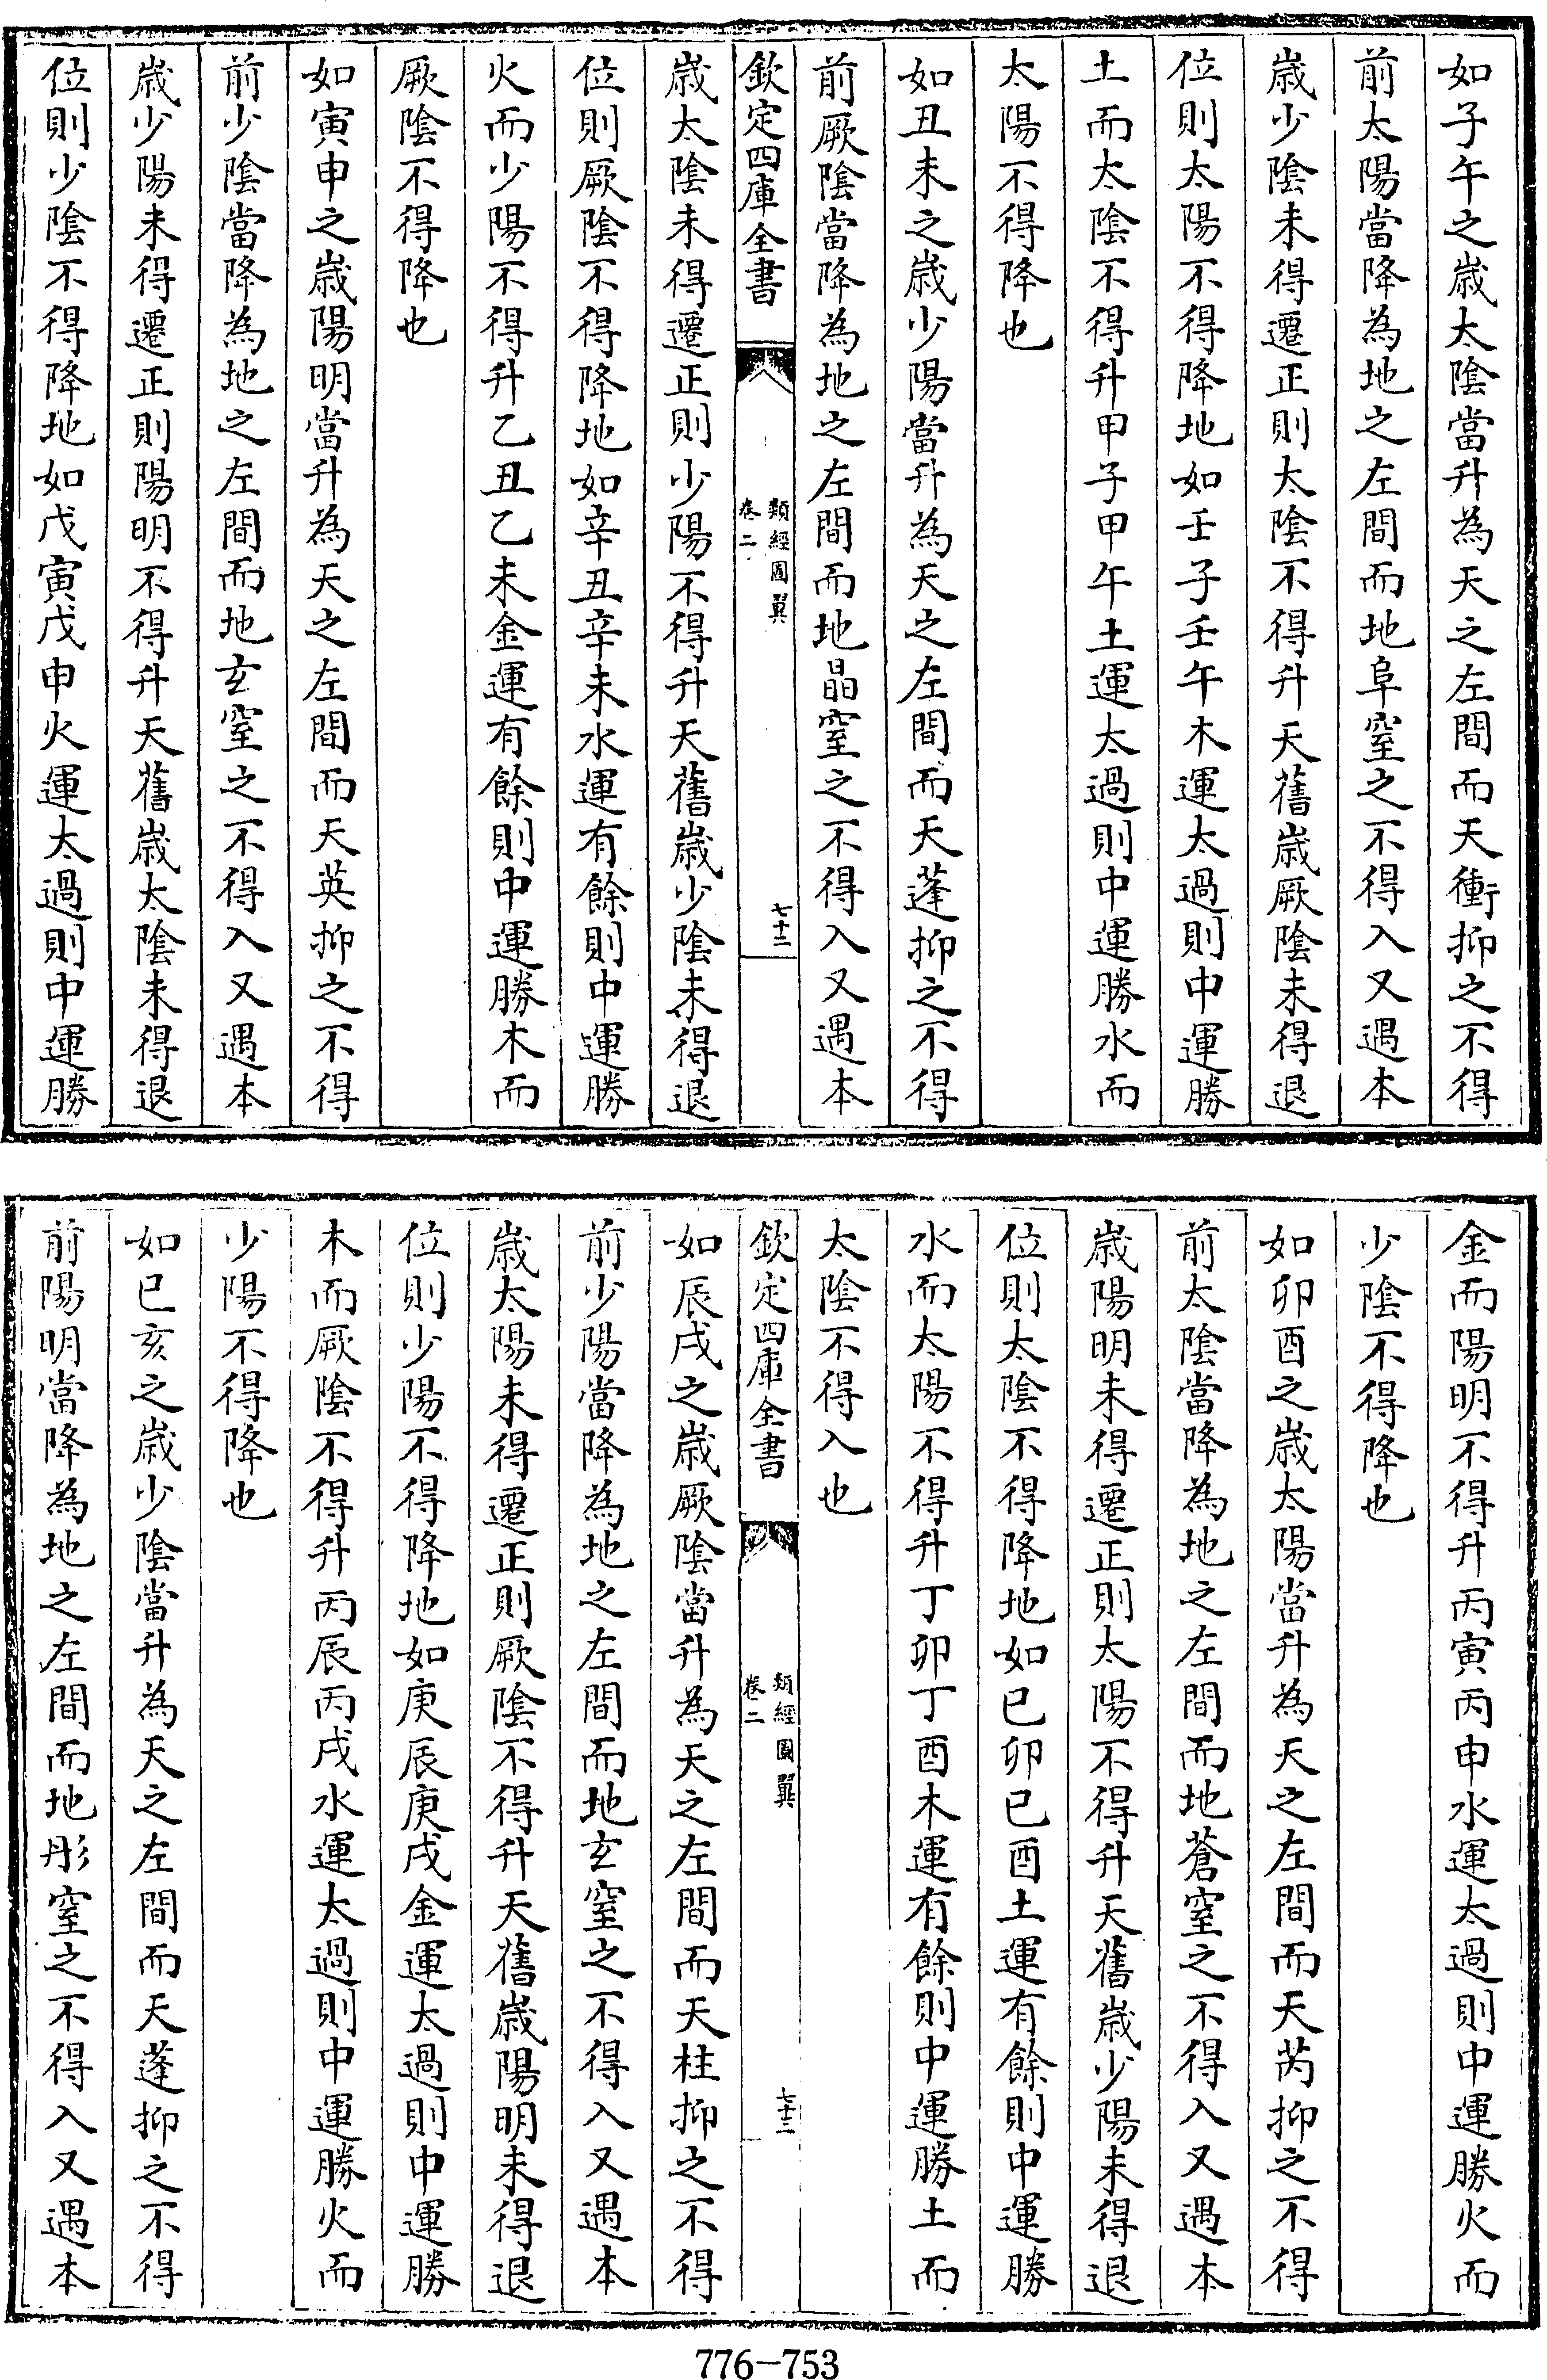 如子午之歲太陰當升為天之左間而天衝抑之不得
前太陽當降為地之左間而地阜窒之不得入又遇本
歲少陰未得遷正則太陰不得升天舊歲厥陰未得退
位則太陽不得降地如壬子壬午木運太過則中運勝
土而太陰不得升甲子甲午土運太過則中運勝水而
太陽不得降也
如丑未之歲少陽當升為天之左間而天蓬抑之不得
前厥陰當降為地之左間而地晶窒之不得入又遇本
欽定四庫全書
類經圖翼
卷二
七十二
歲太陰未得遷正則少陽不得升天舊歲少陰未得退
位則厥陰不得降地如辛丑辛未水運有餘則中運勝
火而少陽不得升乙丑乙未金運有餘則中運勝木而
厥陰不得降也
如寅申之歲陽明當升為天之左間而天英抑之不得
前少陰當降為地之左間而地玄窒之不得入又遇本
歲少陽未得遷正則陽明不得升天舊歲太陰未得退
位則少陰不得降地如戊寅戊申火運太過則中運勝
金而陽明不得升丙寅丙申水運太過則中運勝火而
少陰不得降也
如卯酉之歲太陽當升為天之左間而天芮抑之不得
前太陰當降為地之左間而地蒼窒之不得入又遇本
歲陽明未得遷正則太陽不得升天舊歲少陽未得退
位則太陰不得降地如已卯已酉土運有餘則中運勝
水而太陽不得升丁卯丁酉木運有餘則中運勝土而
太陰不得入也
欽定四庫全書
類經圖翼
卷二
七十三
如辰戌之歲厥陰當升為天之左間而天柱抑之不得
前少陽當降為地之左間而地玄窒之不得入又遇本
歲太陽未得遷正則厥陰不得升天舊歲陽明未得退
位則少陽不得降地如庚辰庚戌金運太過則中運勝
木而厥陰不得升丙辰丙戌水運太過則中運勝火而
少陽不得降也
如已亥之歲少陰當升為天之左間而天蓬抑之不得
前陽明當降為地之左間而地彤窒之不得入又遇本
776-753